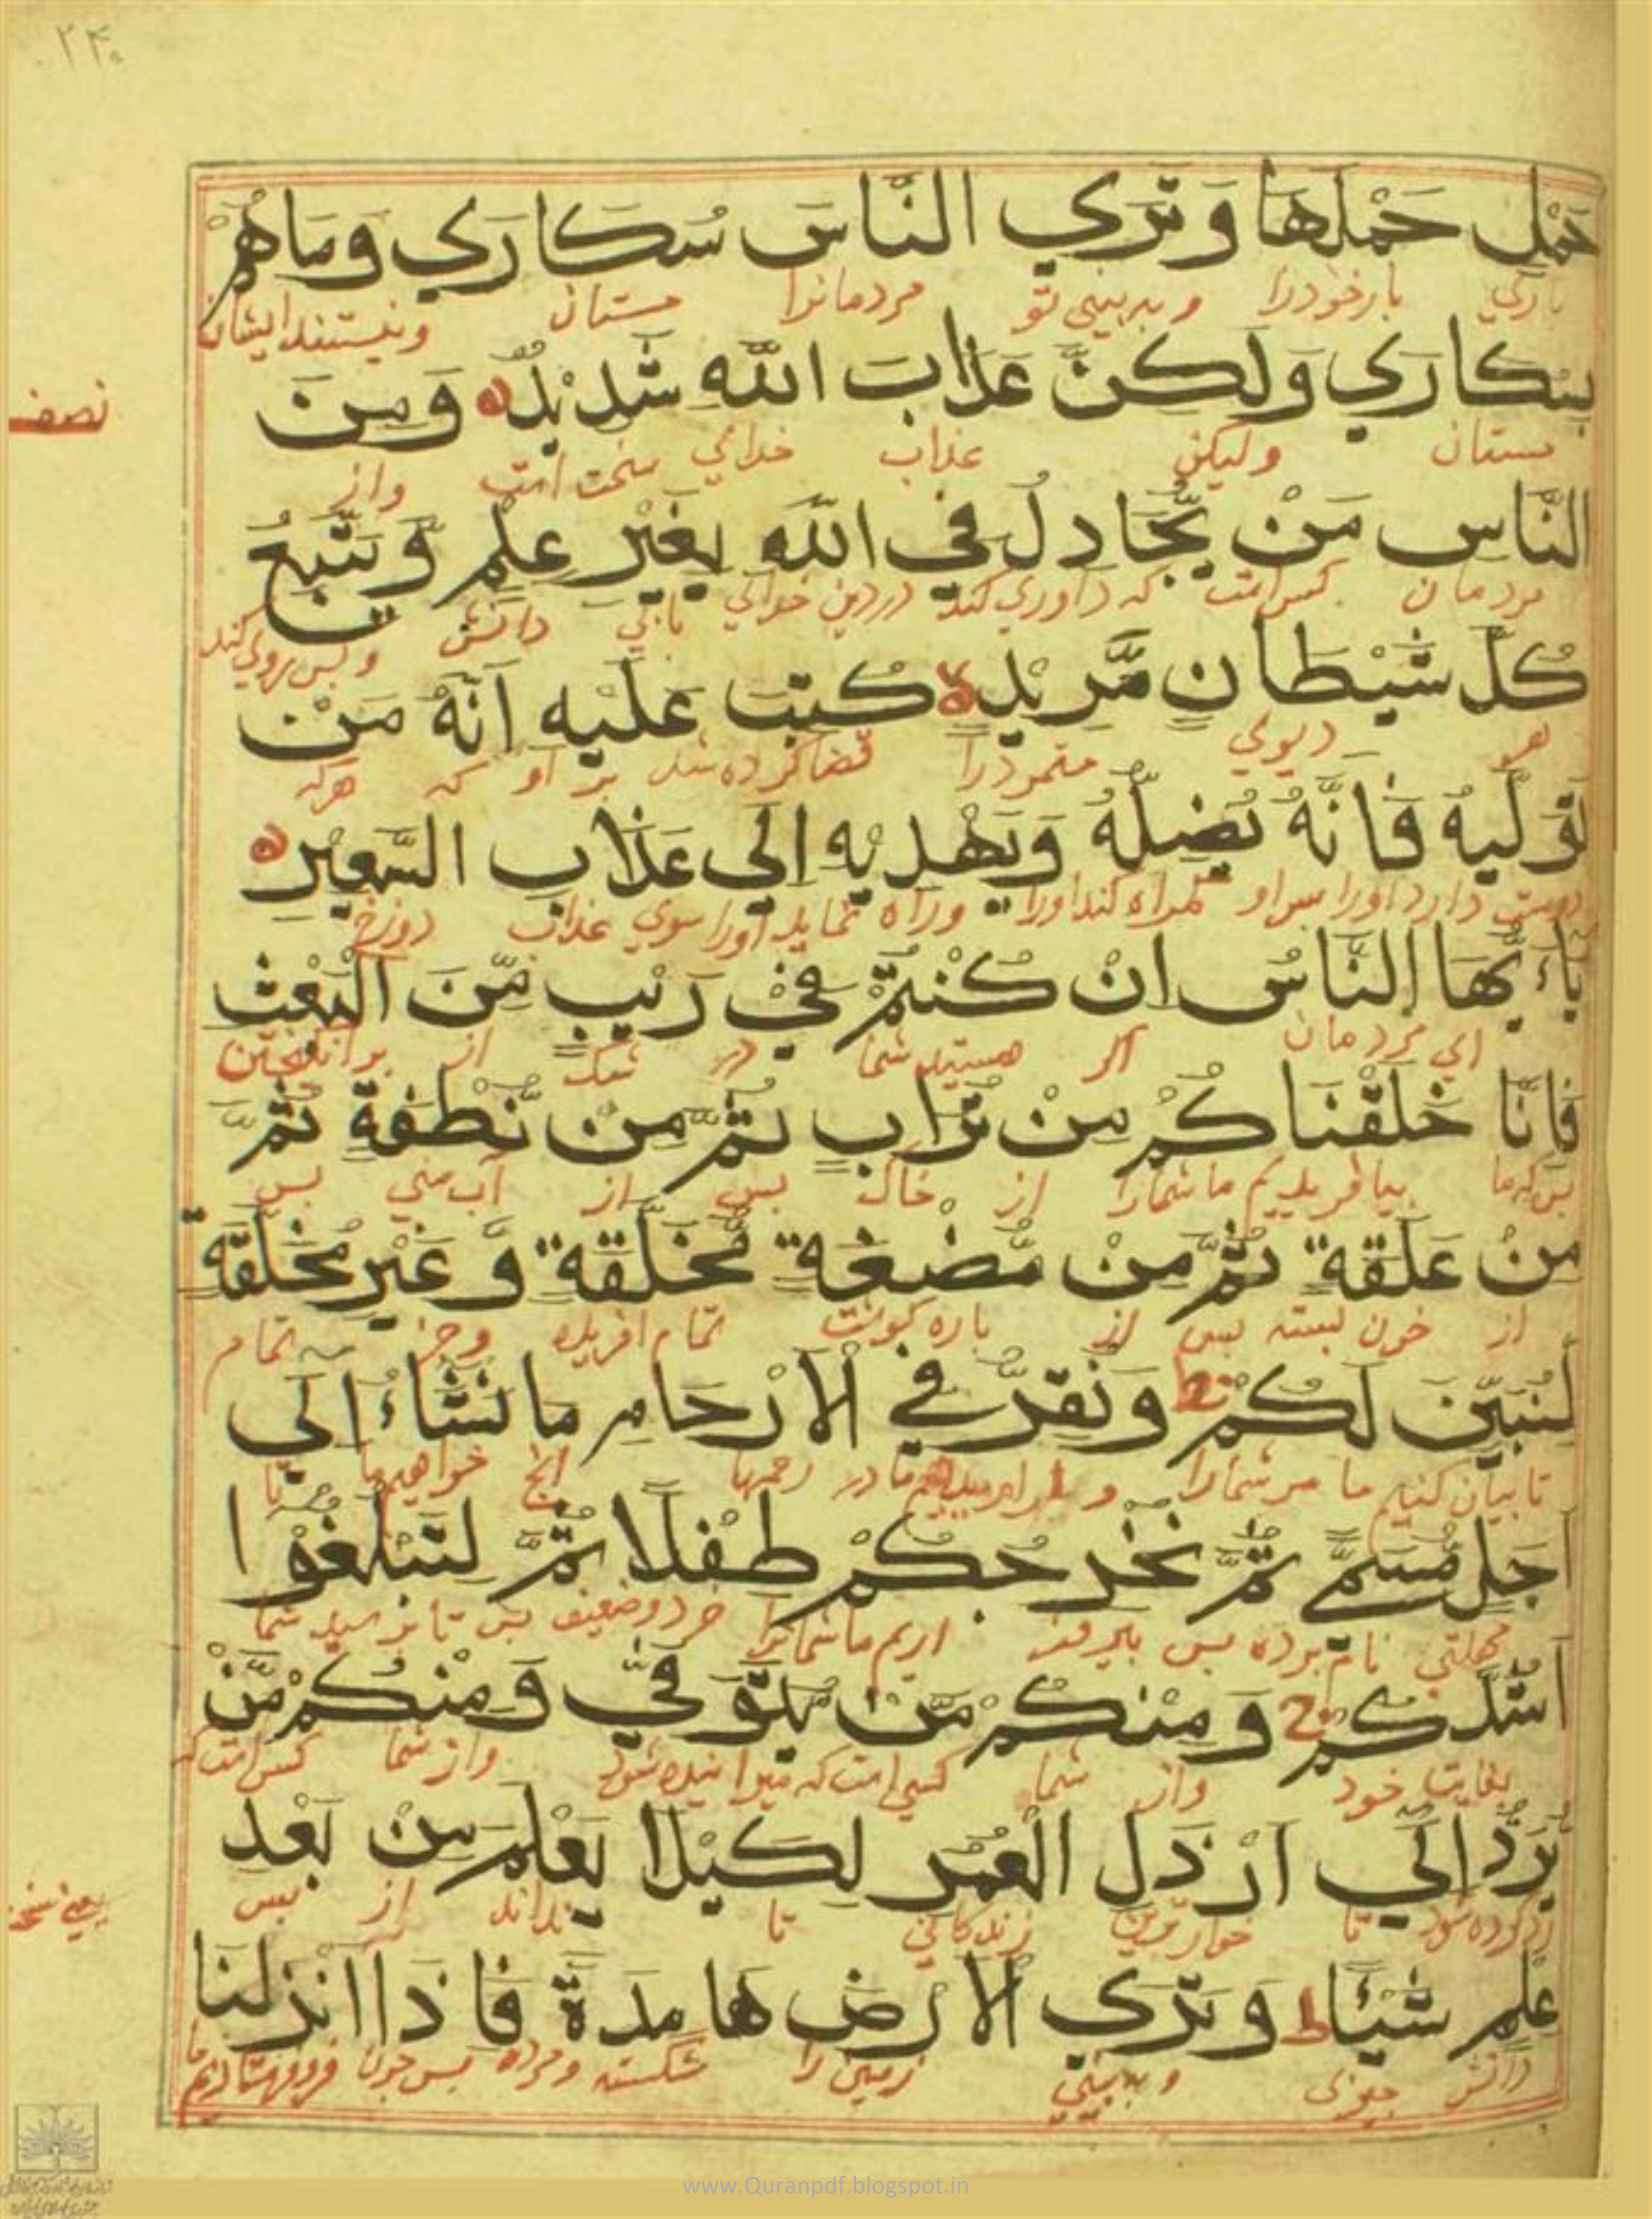 ۲۴۰
حَمْلٍ حَمْلَهَا وَتَرَي النَّاسَ سُكَارَي وَمَاهُمْ
باري بار خودرا و به بيني تو مردمانرا مستان ونيستند ايشان
بِسُكَارَي وَلَكِنَّ عَذَابَ اللَّهِ شَدِيْدٌ ه وَمِنَ
نصف
مستان وليكن عذاب خداي سخت است واز
النَّاسِ مَنْ يُّجَادِلُ فِي اللَّهِ بِغَيْرِ عِلْمٍ وَّيَتَّبِعُ
مردمان كس است كه داوري كند دردين خداي بابي دانش و پس روي كند
كُلَّ شَيْطَانٍ مَّرِيْدٍ لا كُتِبَ عَلَيْهِ اَنَّهُ مَنْ
هر ديوي متمردرا قضا كرده شد بر او كه هركه
تَوَلَّيهُ فَاَنَّهُ يُضِلُّهُ وَيَهْدِيْهِ اِلَي عَذَابِ السَّعِيْرِ ه
دوستي دارد اورا پس او گمراه كند اورا وراه نمايد اورا سوي عذاب دوزخ
يَاءَيُّهَا النَّاسُ اِنْ كُنْتُمْ فِيْ رَيْبٍ مِّنَ الْبَعْثِ
اي مردمان اگر هستيد شما در شك از برانگيختن
فَاِنَّا خَلَقْنَاكُمْ مِنْ تُرَابٍ ثُمَّ مِنْ نُّطْفَةٍ ثُمَّ
پس كه ما بيافريديم ما شمارا از خاك پس از آب مني پس
مِنْ عَلَقَةٍ ثُمَّ مِنْ مُّضْغَةٍ مُّخَلَّقَةٍ وَّ غَيْرِ مُخَلَّقَةٍ
از خون بسته پس از پاره گوشت تمام افريده وجز تمام
لِنُبَيِّنَ لَكُمْ وَنُقِرُّ فِي الْاَرْحَامِ مَا نَشَاءُ اِلَي
تا بيان كنيم ما مر شمارا و ما در رحمها انچ خواهيم ما تا
اَجَلٍ مُّسَمًّي ثُمَّ نُخْرِجُكُمْ طِفْلًا ثُمَّ لِتَبْلُغُوْا
مهلتي نام برده پس بيرون اريم ما شمارا خرد وضعيف پس تا برسيد شما
اَشُدَّكُمْ وَمِنْكُمْ مَّنْ يُّتَوَفَّي وَمِنْكُمْ مَّنْ
بغايت خود واز شما كسي است كه ميرانيده شود واز شما كس است كه
يُّرَدُّ اِلَي اَرْذَلِ الْعُمُرِ لِكَيْلَا يَعْلَمَ مِنْ بَعْدِ
رد كرده شود تا خوارترين زندگاني تا نداند از پس
عِلْمٍ شَيْئًا ط وَتَرَي الْاَرْضَ هَامِدَةً فَاِذَا اَنْزَلْنَا
دانش چيزي و به بيني زمين را شكسته ومرده پس چون فروفرستاديم ما
www.Quranpdf.blogspot.in